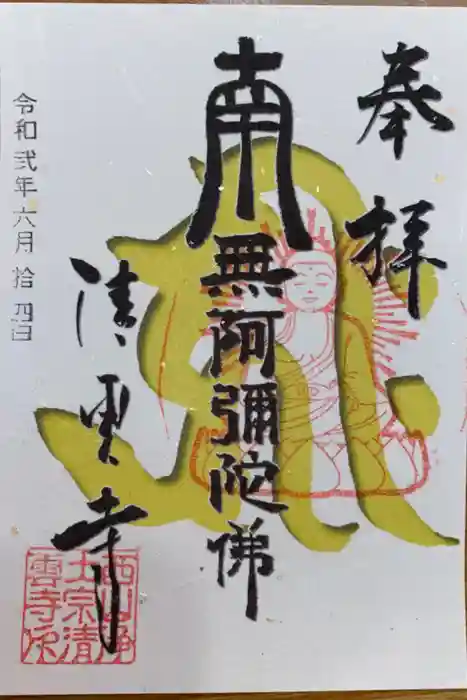 奉拝
南無阿彌陀佛
清雲寺
西山浄
土宗清
雲寺印
令和弐年六月拾四日